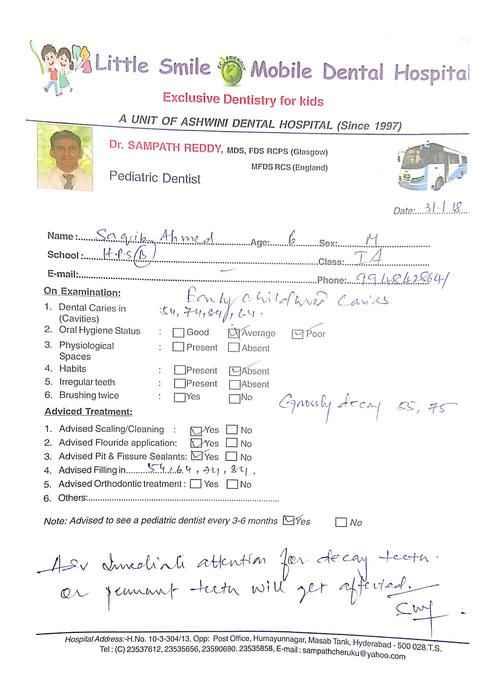 Little Smile Mobile Dental Hospital
Exclusive Dentistry for kids
A UNIT OF ASHWINI DENTAL HOSPITAL (Since 1997)
Dr. SAMPATH REDDY, MDS, FDS RCPS (Glasgow)
MFDS RCS (England)
Pediatric Dentist
Date: 31/1/18
Name: Saquib Ahmed Age: 6 Sex: M
School: H.P.S (B) Class: I A
E-mail: Phone:
On Examination: Early childhood Caries
1. Dental Caries in (Cavities) : 54, 74, 84, 64.
2. Oral Hygiene Status : Good Average Poor
3. Physiological Spaces : Present Absent
4. Habits : Present Absent
5. Irregular teeth : Present Absent
6. Brushing twice : Yes No
Grossly decay 55, 75
Adviced Treatment:
1. Advised Scaling/Cleaning : Yes No
2. Advised Flouride application: Yes No
3. Advised Pit & Fissure Sealants: Yes No
4. Advised Filling in 54, 64, 74, 84.
5. Advised Orthodontic treatment : Yes No
6. Others:
Note: Advised to see a pediatric dentist every 3-6 months Yes No
Adv Immediate attention for decay teeth.
or permanent teeth will get affected.
Hospital Address:-H.No. 10-3-304/13, Opp: Post Office, Humayunnagar, Masab Tank, Hyderabad - 500 028.T.S.
Tel : (C) 23537612, 23535656, 23590690. 23535858, E-mail : sampathcheruku@yahoo.com